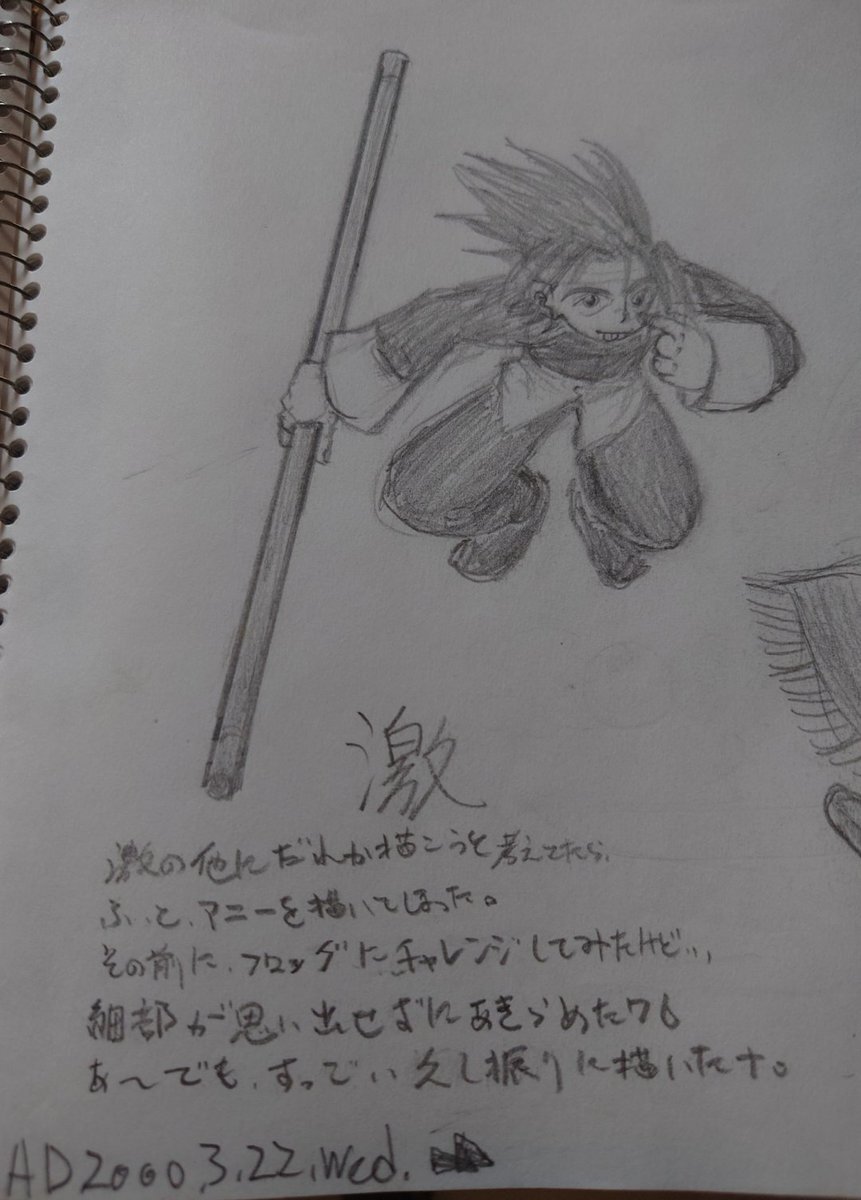 激
激の他にだれか描こうと考えてたら、
ふいと、アニーを描いてしまった。
その前に、フロッグにチャレンジしてみたけど…、
細部が思い出せずにあきらめた
あ〜でも、すっごい久し振りに描いたナ。
AD2000.3.22.Wed.